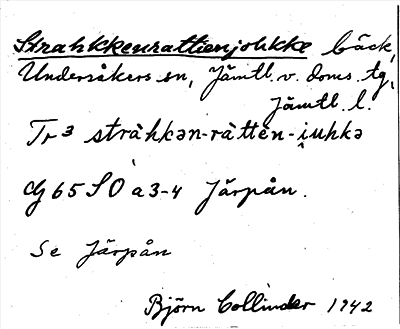 Strahkkenrattienjohkke bäck,
Undersåkers sn, Jämtl. v. doms. tg,
Jämtl. l.
Tr 3 stràhkən-ràttèn-i̯uhkə
G 65 SO a 3-4 Järpån.
Se Järpån
Björn Collinder 1942